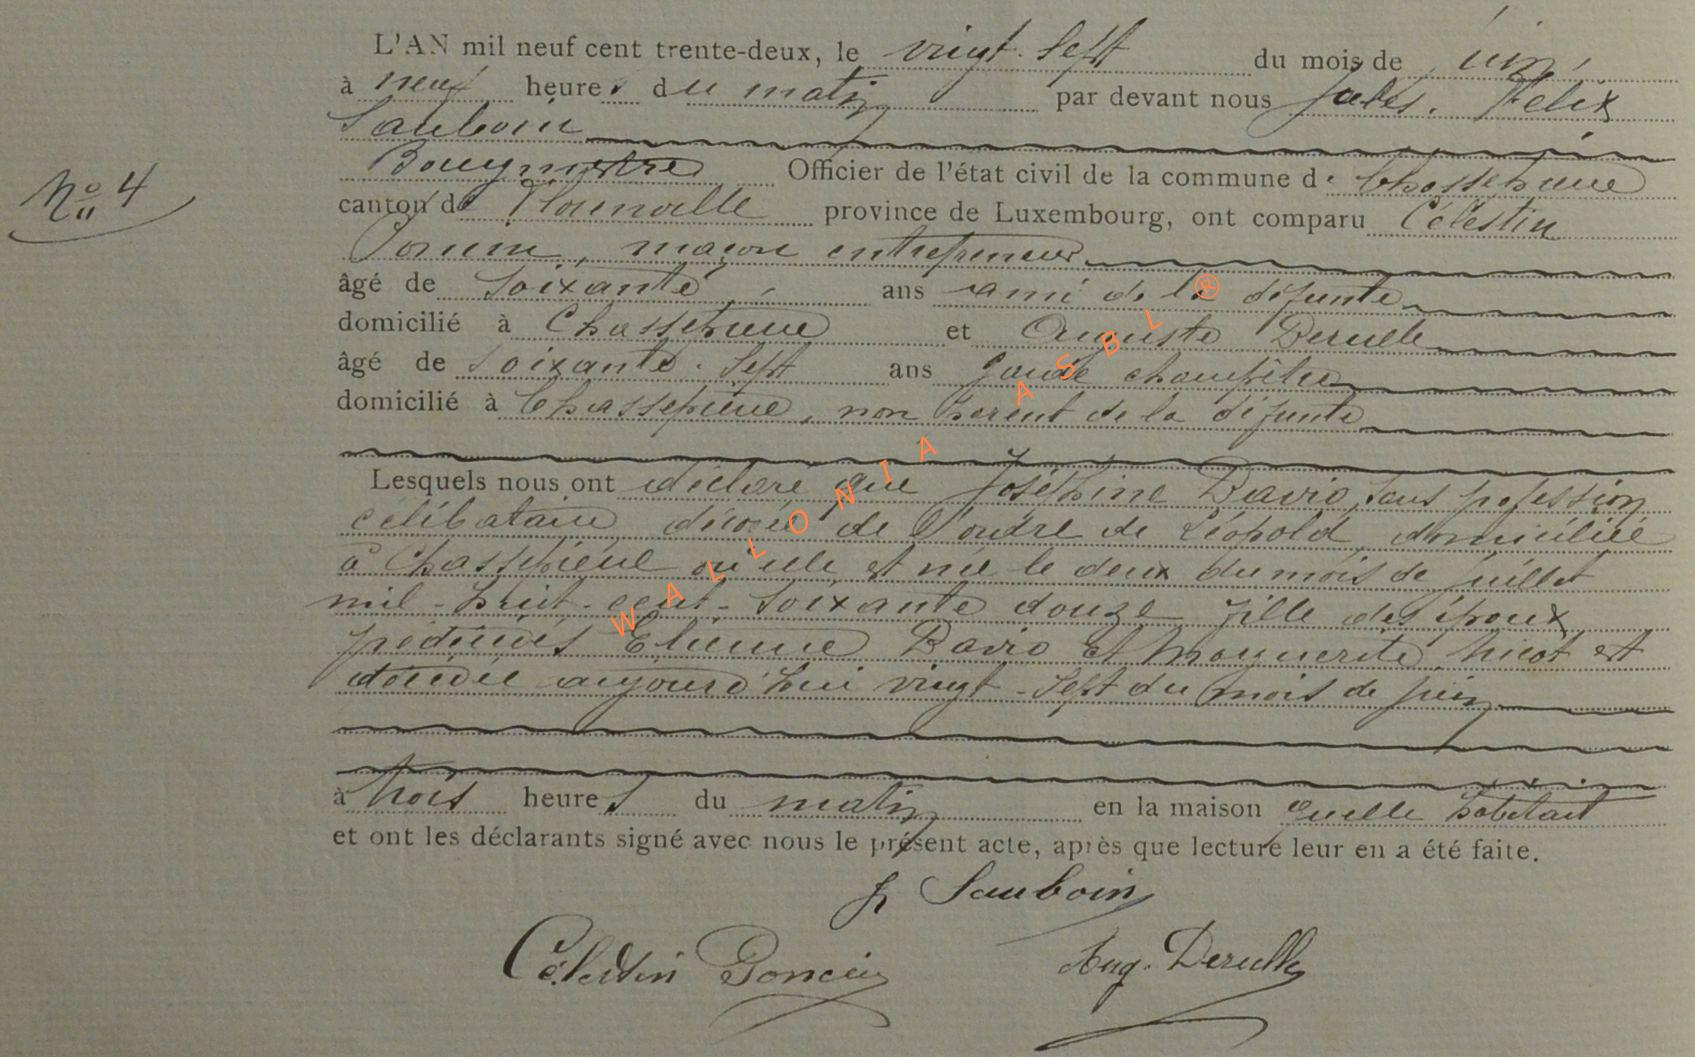 L'AN mil neuf cent trente-deux, le vingt-sept du mois de juin
à neuf heures du matin par devant nous Jules, Félix
Sauboin
Bourgmestre Officier de l'état civil de la commune de Chassepierre
N° 4
canton de Florenville province de Luxembourg, ont comparu Célestin
maçon entrepreneur
âgé de soixante ans ami de la défunte
domicilié à Chassepierre et Auguste Derulle
âgé de soixante-sept ans garde champêtre
domicilié à Chassepierre, non parent de la défunte
Lesquels nous ont déclaré que Joséphine Davio, sans profession
célibataire décorée de l'ordre de Léopold domiciliée
à Chassepierre où elle est née le deux du mois de juillet
mil-huit-cent-soixante douze fille des époux
Etienne Davio et Marguerite est
décédée aujourd'hui vingt-sept du mois de juin
à trois heures du matin en la maison quelle habitait
et ont les déclarants signé avec nous le présent acte, après que lecture leur en a été faite.
J Sauboin
Célestin Aug. Derulle
WALLONIA ASBL ®